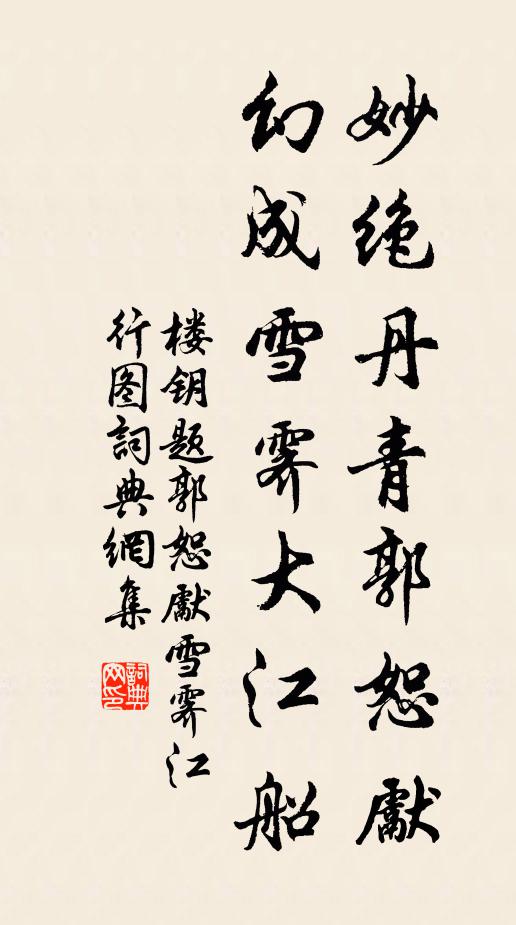 妙绝丹青郭恕獻
幻成雪霁大江船
楼钥题郭恕獻雪霁江
行图詞典網集
詞典
网印